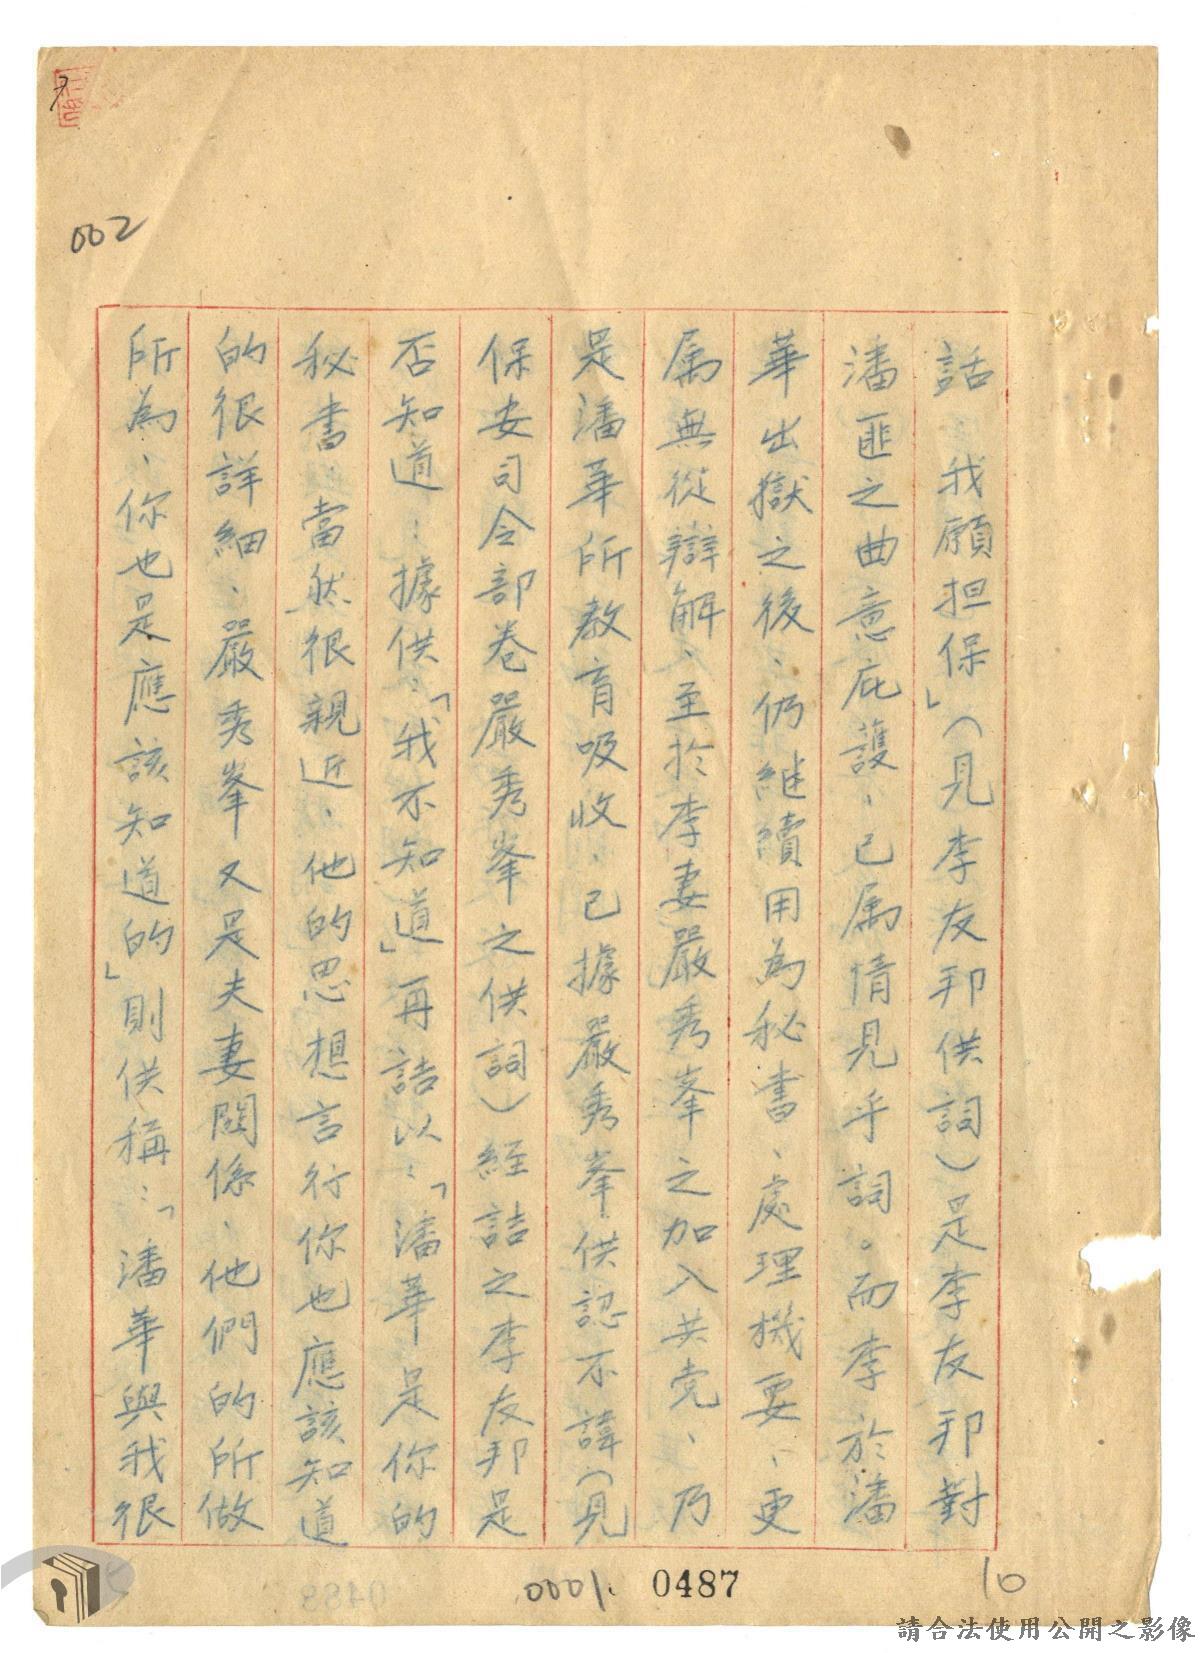 002
話 我願担保」(見李友邦供詞)是李友邦對
潘匪之曲意庇護、已属情見乎詞。而李於潘
華出獄之後、仍継續用為秘書、處理機要、更
属無從辯解、至於李妻嚴秀峯之加入共党、乃
是潘華所教育吸收、已據嚴秀峯供認不諱(見
保安司令部卷嚴秀峯之供詞)經詰之李友邦是
否知道:據供:「我不知道」再詰以:「潘華是你的
秘書當然很親近、他的思想言行你也應該知道
的很詳細、嚴秀峯又是夫妻関係、他們的所做
所為、你也是應該知道的」則供稱:「潘華與我很
0001. 0487
10
請合法使用公開之影像